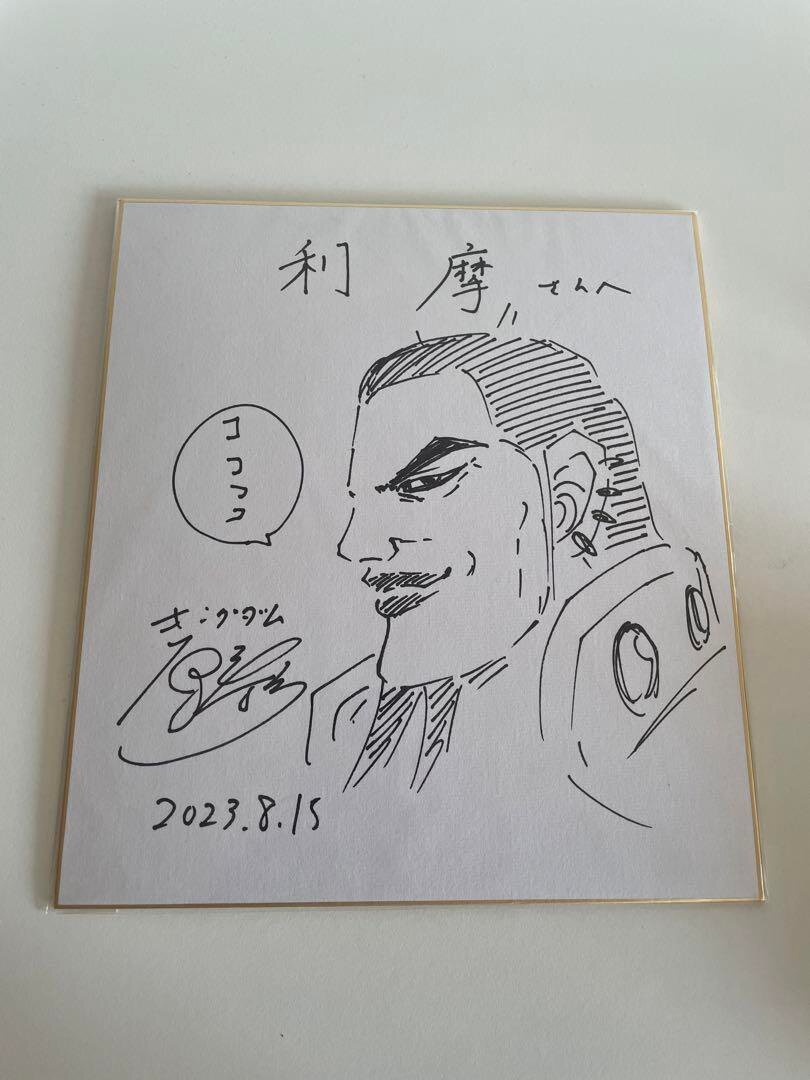 利 摩 さんへ
コココココ
キングダム
原泰久
2023.8.15